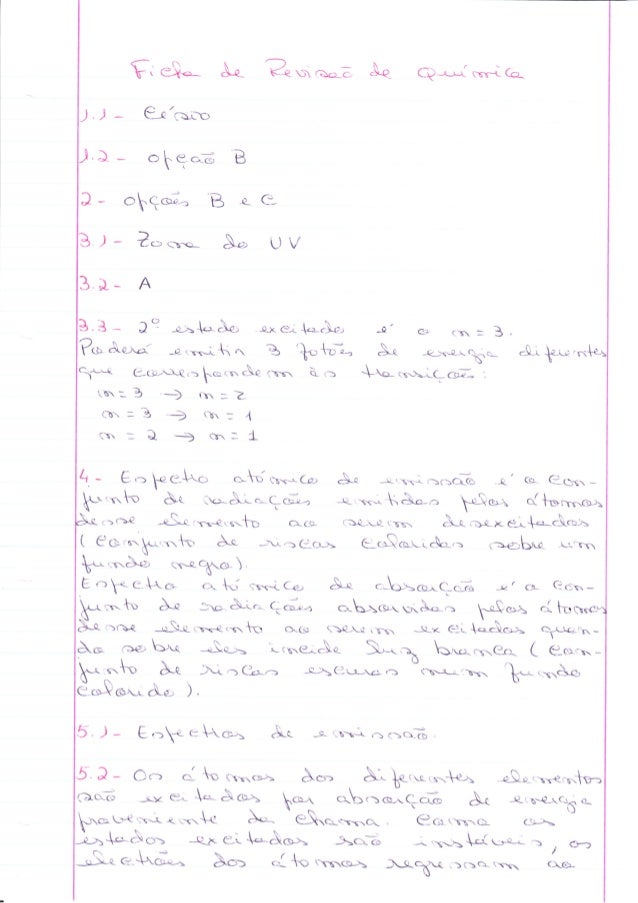 Ficha de Revisão de Química
1.1- Césio
1.2- opção B
2- opções B e C
3.1- Zona do UV
3.2- A
3.3- 2º estado excitado é o n=3.
Poderá emitir 3 fotões de energia diferentes
que correspondem às transições:
n=3 → n=2
n=3 → n=1
n=2 → n=1
4- Espectro atómico de emissão é o con-
junto de radiações emitidas pelos átomos
desse elemento ao serem desexcitados
(conjunto de riscas coloridas sobre um
fundo negro).
Espectro atómico de absorção é o con-
junto de radiações absorvidas pelos átomos
desse elemento ao serem excitados quan-
do sobre eles incide luz branca (con-
junto de riscas escuras num fundo
colorido).
5.1- Espectros de emissão.
5.2- Os átomos dos diferentes elementos
são excitados por absorção de energia
proveniente da chama. Como os
estados excitados são instáveis, os
electrões dos átomos regressam ao